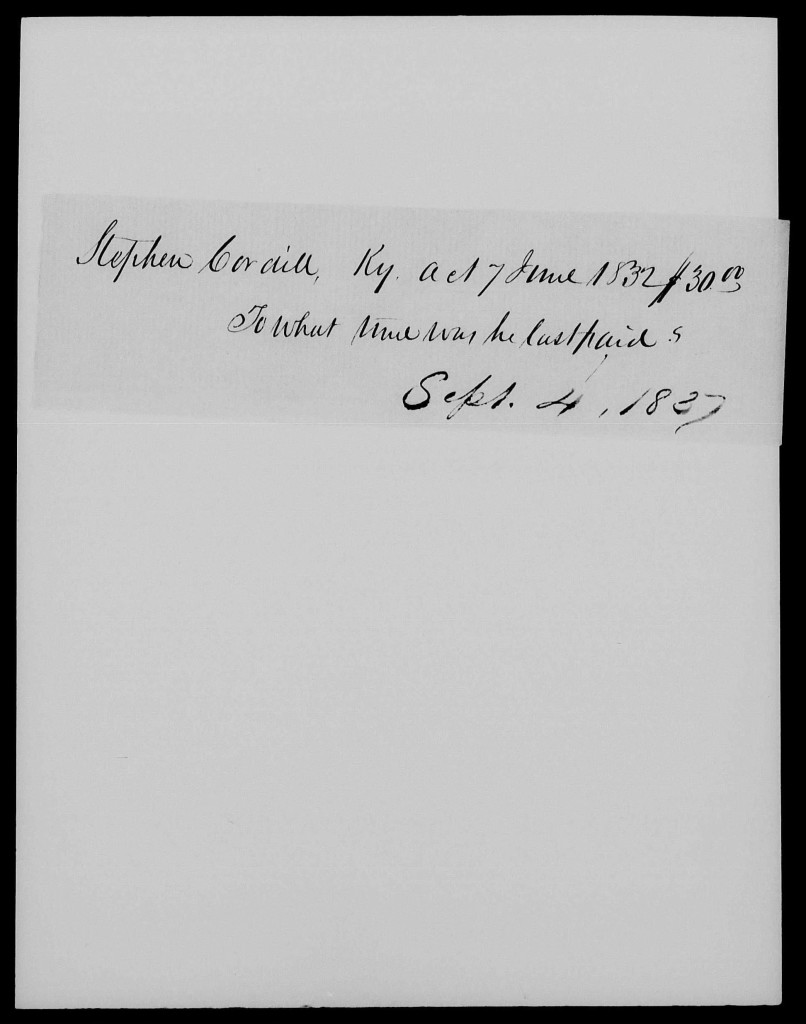 Stephen Cordill, Ky. Act 7 June 1832 $30.00
To what time was he last paid?
Sept. 4, 1837